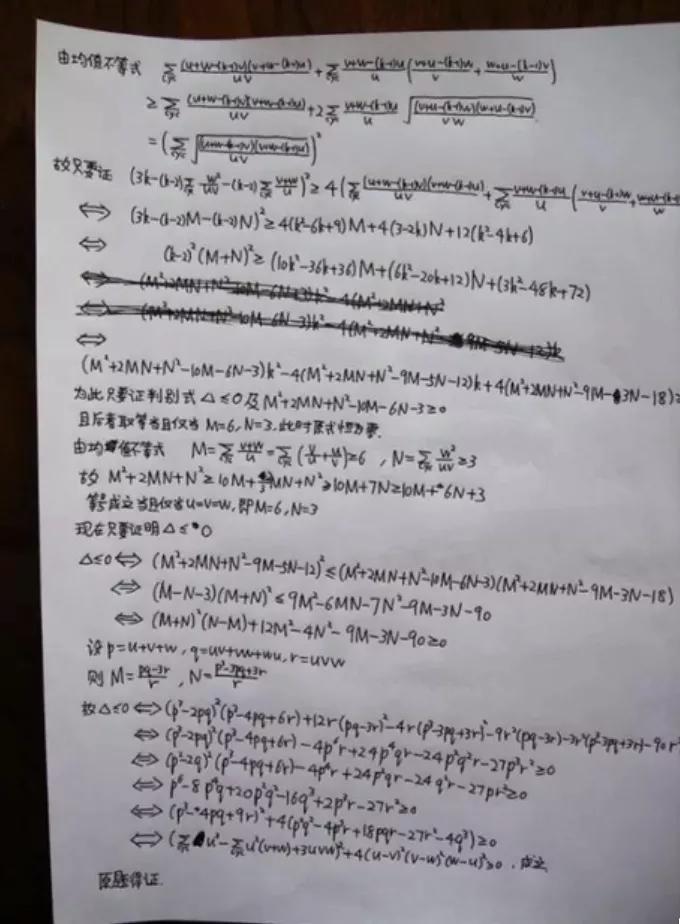 由均值不等式 ∑cyc (u+w-(k-1)v)(v+w-(k-1)u)/uv + ∑cyc v+w-(k-1)u/u (v+u-(k-1)w/v + w+u-(k-1)v/w)
≥ ∑cyc (u+w-(k-1)v)(v+w-(k-1)u)/uv + 2∑cyc v+w-(k-1)u/u √((v+u-(k-1)w)(w+u-(k-1)v)/vw)
= (∑cyc √((u+w-(k-1)v)(v+w-(k-1)u)/uv))²
故只要证 (3k-(k-2)∑cyc w²/uv-(k-2)∑cyc v+w/u)² ≥ 4(∑cyc (u+w-(k-1)v)(v+w-(k-1)u)/uv + ∑cyc v+w-(k-1)u/u (v+u-(k-1)w/v +
⇔ (3k-(k-2)M-(k-2)N)² ≥ 4(k²-6k+9)M+4(3-2k)N+12(k²-4k+6)
⇔ (k-2)²(M+N)² ≥ (10k²-36k+36)M+(6k²-20k+12)N+(3k²-48k+72)
⇔
(M²+2MN+N²-10M-6N-3)k²-4(M²+2MN+N²-9M-5N-12)k+4(M²+2MN+N²-9M-3N-18)≥
为此只要证判别式△≤0及M²+2MN+N²-10M-6N-3≥0
且后者取等当且仅当M=6,N=3.此时原式恒为零.
由均值不等式 M=∑cyc v+w/u=∑cyc(v/u+u/v)≥6 , N=∑cyc w²/uv≥3
故 M²+2MN+N²≥10M+MN+N²≥10M+7N≥10M+6N+3
等号成立当且仅当u=v=w,即M=6,N=3
现在只要证明△≤0
△≤0⇔(M²+2MN+N²-9M-5N-12)²≤(M²+2MN+N²-10M-6N-3)(M²+2MN+N²-9M-3N-18)
⇔(M-N-3)(M+N)²≤9M²-6MN-7N²-9M-3N-90
⇔(M+N)²(N-M)+12M²-4N²-9M-3N-90≥0
设p=u+v+w,q=uv+vw+wu,r=uvw
则M=pq-3r/r , N=p³-3pq+3r/r
故△≤0⇔(p³-2pq)²(p³-4pq+6r)+12r(pq-3r)²-4r(p³-3pq+3r)²-9r²(pq-3r)-3r²(p³-3pq+3r)-90r³
⇔(p³-2pq)²(p³-4pq+6r)-4p⁶r+24p⁴qr-24p²q²r-27p³r²≥0
⇔(p²-2q)²(p³-4pq+6r)-4p⁴r+24p²qr-24q²r-27pr²≥0
⇔p⁶-8p⁴q+20p²q²-16q³+2p³r-27r²≥0
⇔(p³-4pq+9r)²+4(p²q²-4p³r+18pqr-27r²-4q³)≥0
⇔(∑cyc u³-∑cyc u²(v+w)+3uvw)²+4(u-v)²(v-w)²(w-u)²≥0 . 成立
原题得证.